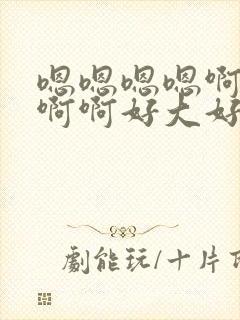 嗯嗯嗯嗯啊
啊啊好大好
劇能玩/十片